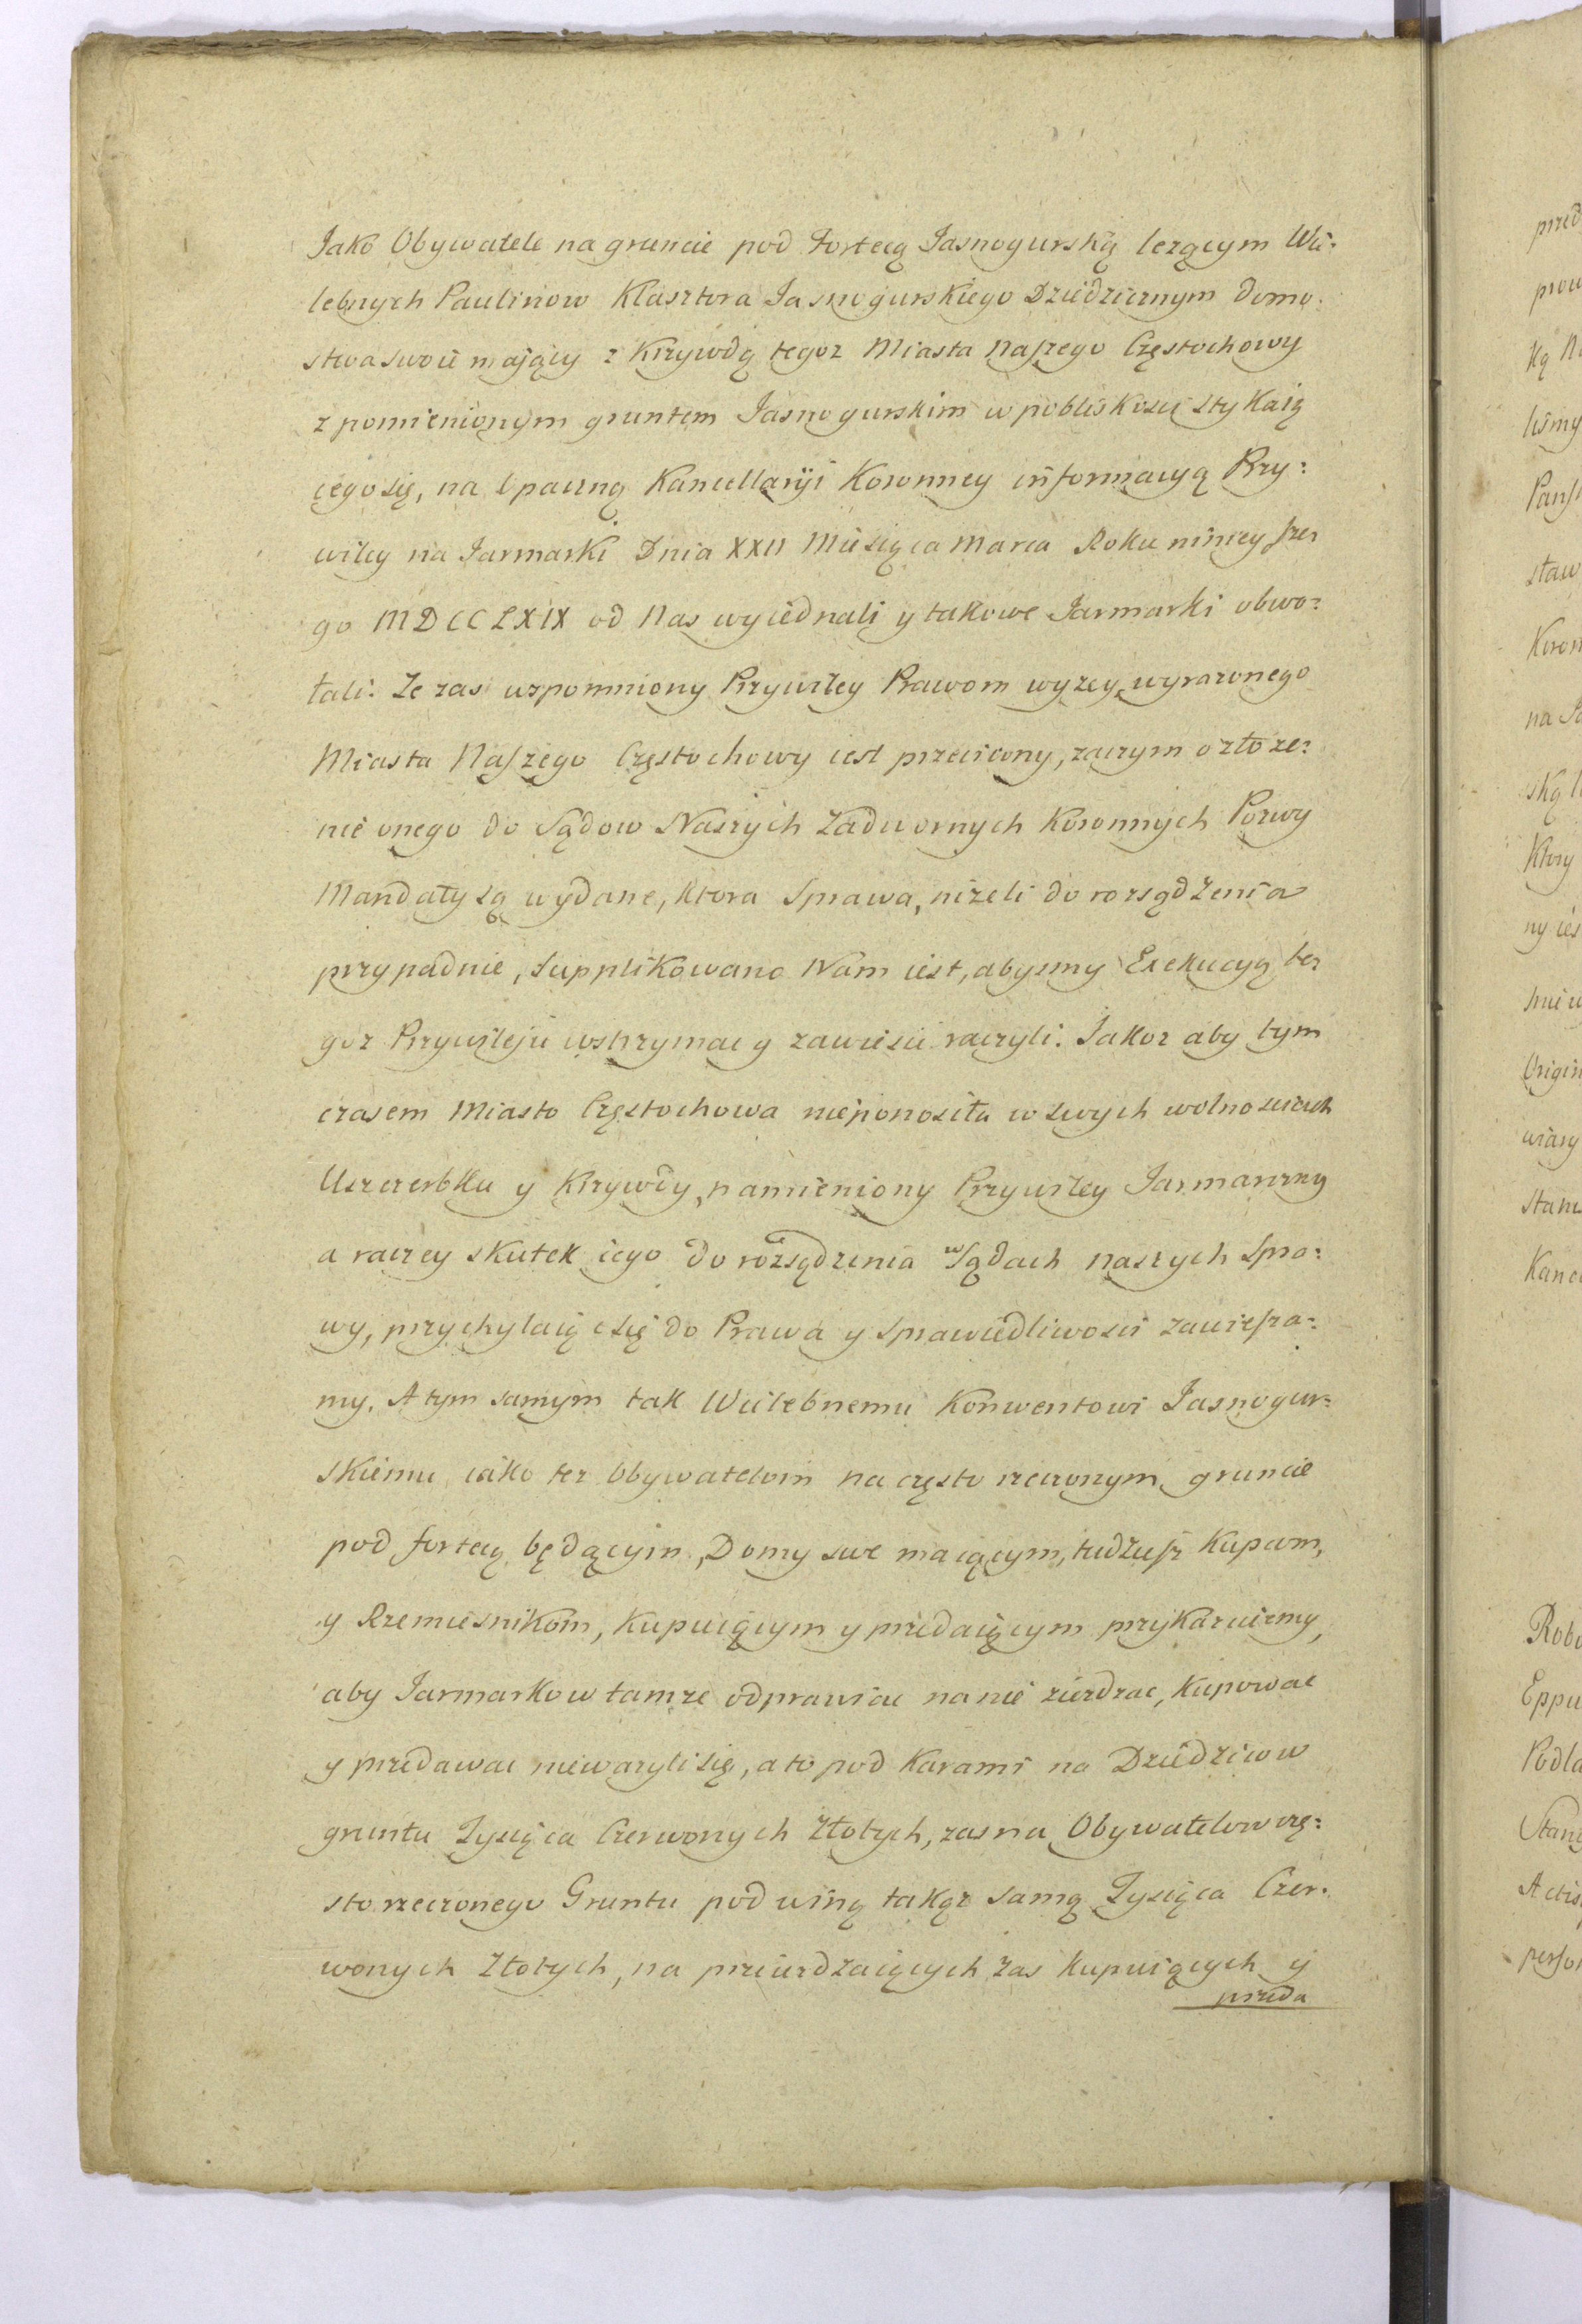 Jako Obywatele na gruncie pod Fortecą Jasnogurską lezącym Wie:
lebnych Paulinow Klasztora Jasnogurskiego Dziedzicznym domo:
stwa swoie mający z Krzywdą tegoz Miasta Naszego Częstochowy
z pomienionym gruntem Jasnogurskim w pobliskosci stykaią
cego się, na opaczną Kancellaryi Koronney informacyą Przy:
wiley na Jarmarki Dnia XXII Miesiąca Marca Roku ninieysze
go MDCCLXIX od Nas wyiednali y takowe Jarmarki obwo:
łali. Ze zas wspomniony Przywiley Prawom wyzey wyrazonego
Miasta Naszego Częstochowy iest przeciwny, zaczym o złoze:
nie onego do Sądow Naszych Zadwornych Koronnych Pozwy
Mandaty są wydane, ktora Sprawa, nizeli do rozsądzenia
przypadnie, supplikowano Nam iest, abysmy Exekucyą te
goz Przywileju wstrzymac y zawiesic raczyli. Jakoz aby tym
czasem Miasto Częstochowa nieponosiła w swych wolnosciach
Uszczerbku y Krzywdy, namieniony Przywiley Jarmarczny
a raczey skutek iego do rozsądzenia w Sądach naszych Spra:
wy, przychylaiąc się do Prawa y Sprawiedliwosci zawiesza:
my. A tym samym tak Wielebnemu Konwentowi Jasnogur:
skiemu iako tez Obywatelom na często rzeczonym gruncie
pod fortecą będącym, Domy swe maiącym, tudziesz Kupcom,
y Rzemiesnikom, kupuiącym y przedaiącym przykazuiemy,
aby Jarmarkow tamze odprawiac na nie ziezdzac, kupowac
y przedawac niewazyli się, a to pod karami na Dziedzicow
gruntu Tysiąca Czerwonych Złotych, zas na Obywatelow czę:
sto rzeczonego Gruntu pod winą takąz samą Tysiąca Czer:
wonych Złotych, na przyiezdzaiących zas kupuiących y
przeda